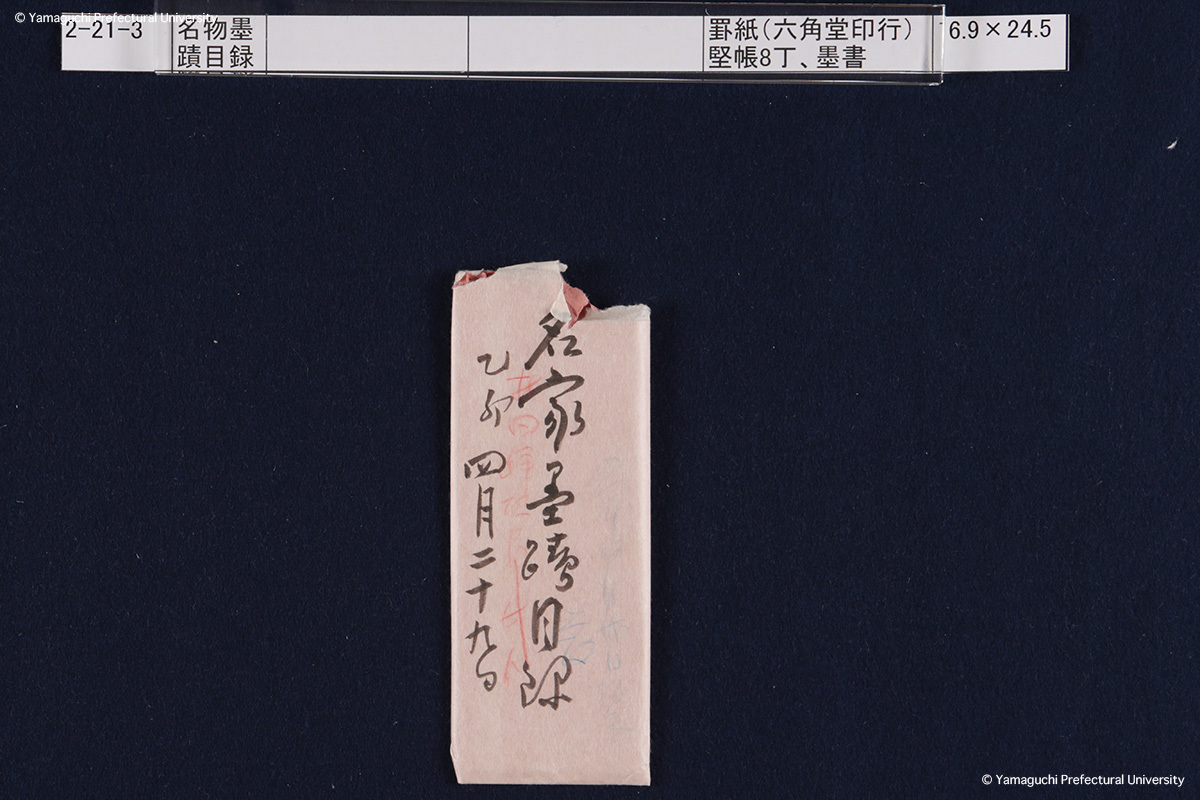 © Yamaguchi Prefectural University
2-21-3
名物墨
蹟目録
罫紙(六角堂印行)
堅帳8丁、墨書
6.9×24.5
名家墨蹟目録
乙卯 四月二十九日
© Yamaguchi Prefectural University